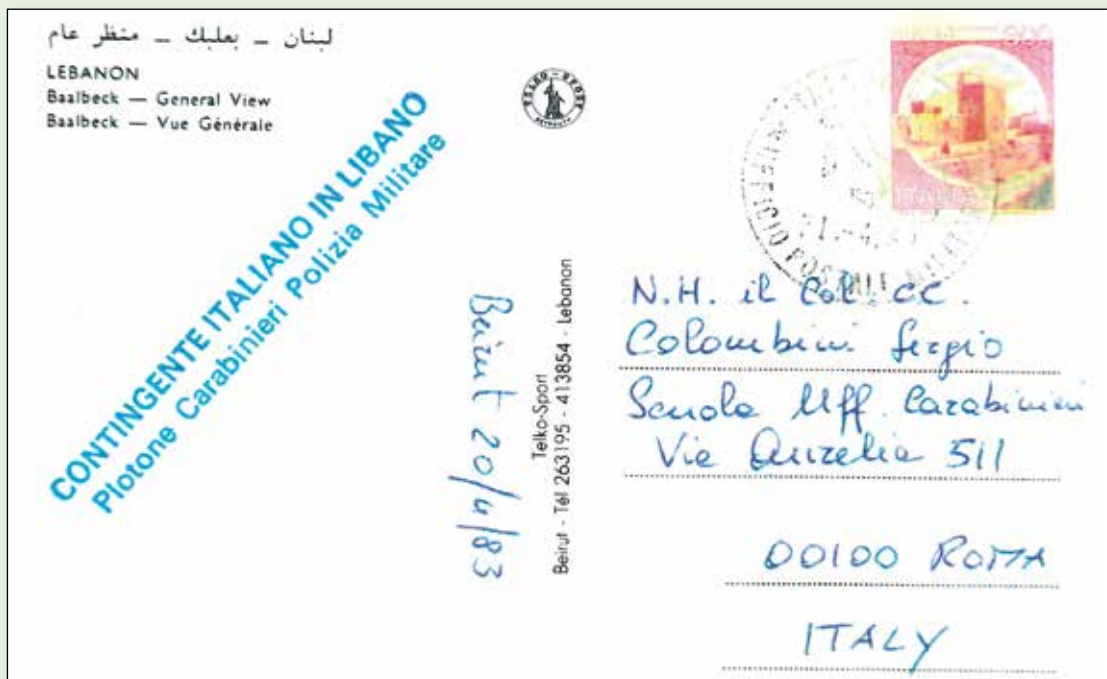 لبنان ــ بعلبك ــ منظر عام
LEBANON
Baalbeck — General View
Baalbeck — Vue Générale
CONTINGENTE ITALIANO IN LIBANO
Plotone Carabinieri Polizia Militare
TELKO-SPORT
BEYROUTH
Beirut 20/4/83
Telko-Sport
Beirut - Tél 263195 - 413854 - Lebanon
ITALIA
UFFICIO POSTALE MILITARE
N.H. il Col. CC.
Colombini Sergio
Scuola Uff. Carabinieri
Via Aurelia 511
00100 ROMA
ITALY